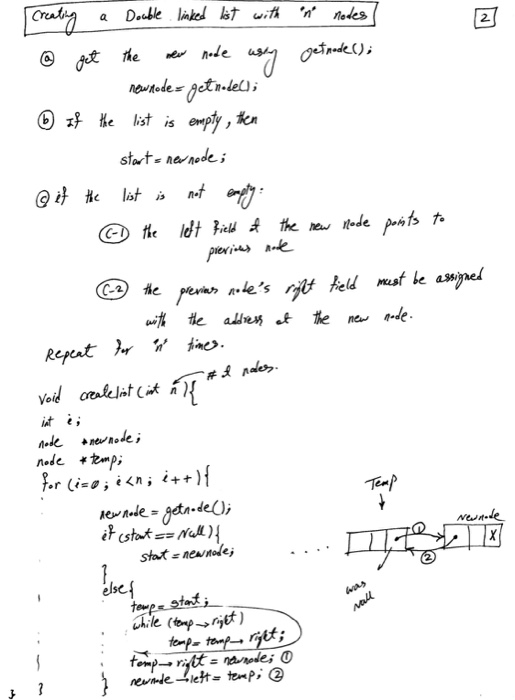 Creating a Double linked list with "n" nodes
2
(a) get the new node using getnode();
newnode = getnode();
(b) If the list is empty, then
start = newnode;
(c) if the list is not empty:
(C-1) the left field of the new node points to
previous node
(C-2) the previous node's right field must be assigned
with the address of the new node.
Repeat for "n" times.
# of nodes.
void createlist(int n){
int i;
node *newnode;
node *temp;
for (i=0; i<n; i++){
newnode = getnode();
if (start == Null){
start = newnode;
}
else{
temp = start;
while (temp → right)
temp = temp → right;
temp → right = newnode; ①
newnode → left = temp; ②
}
}
}
Temp
Newnode
①
X
②
....
was
null